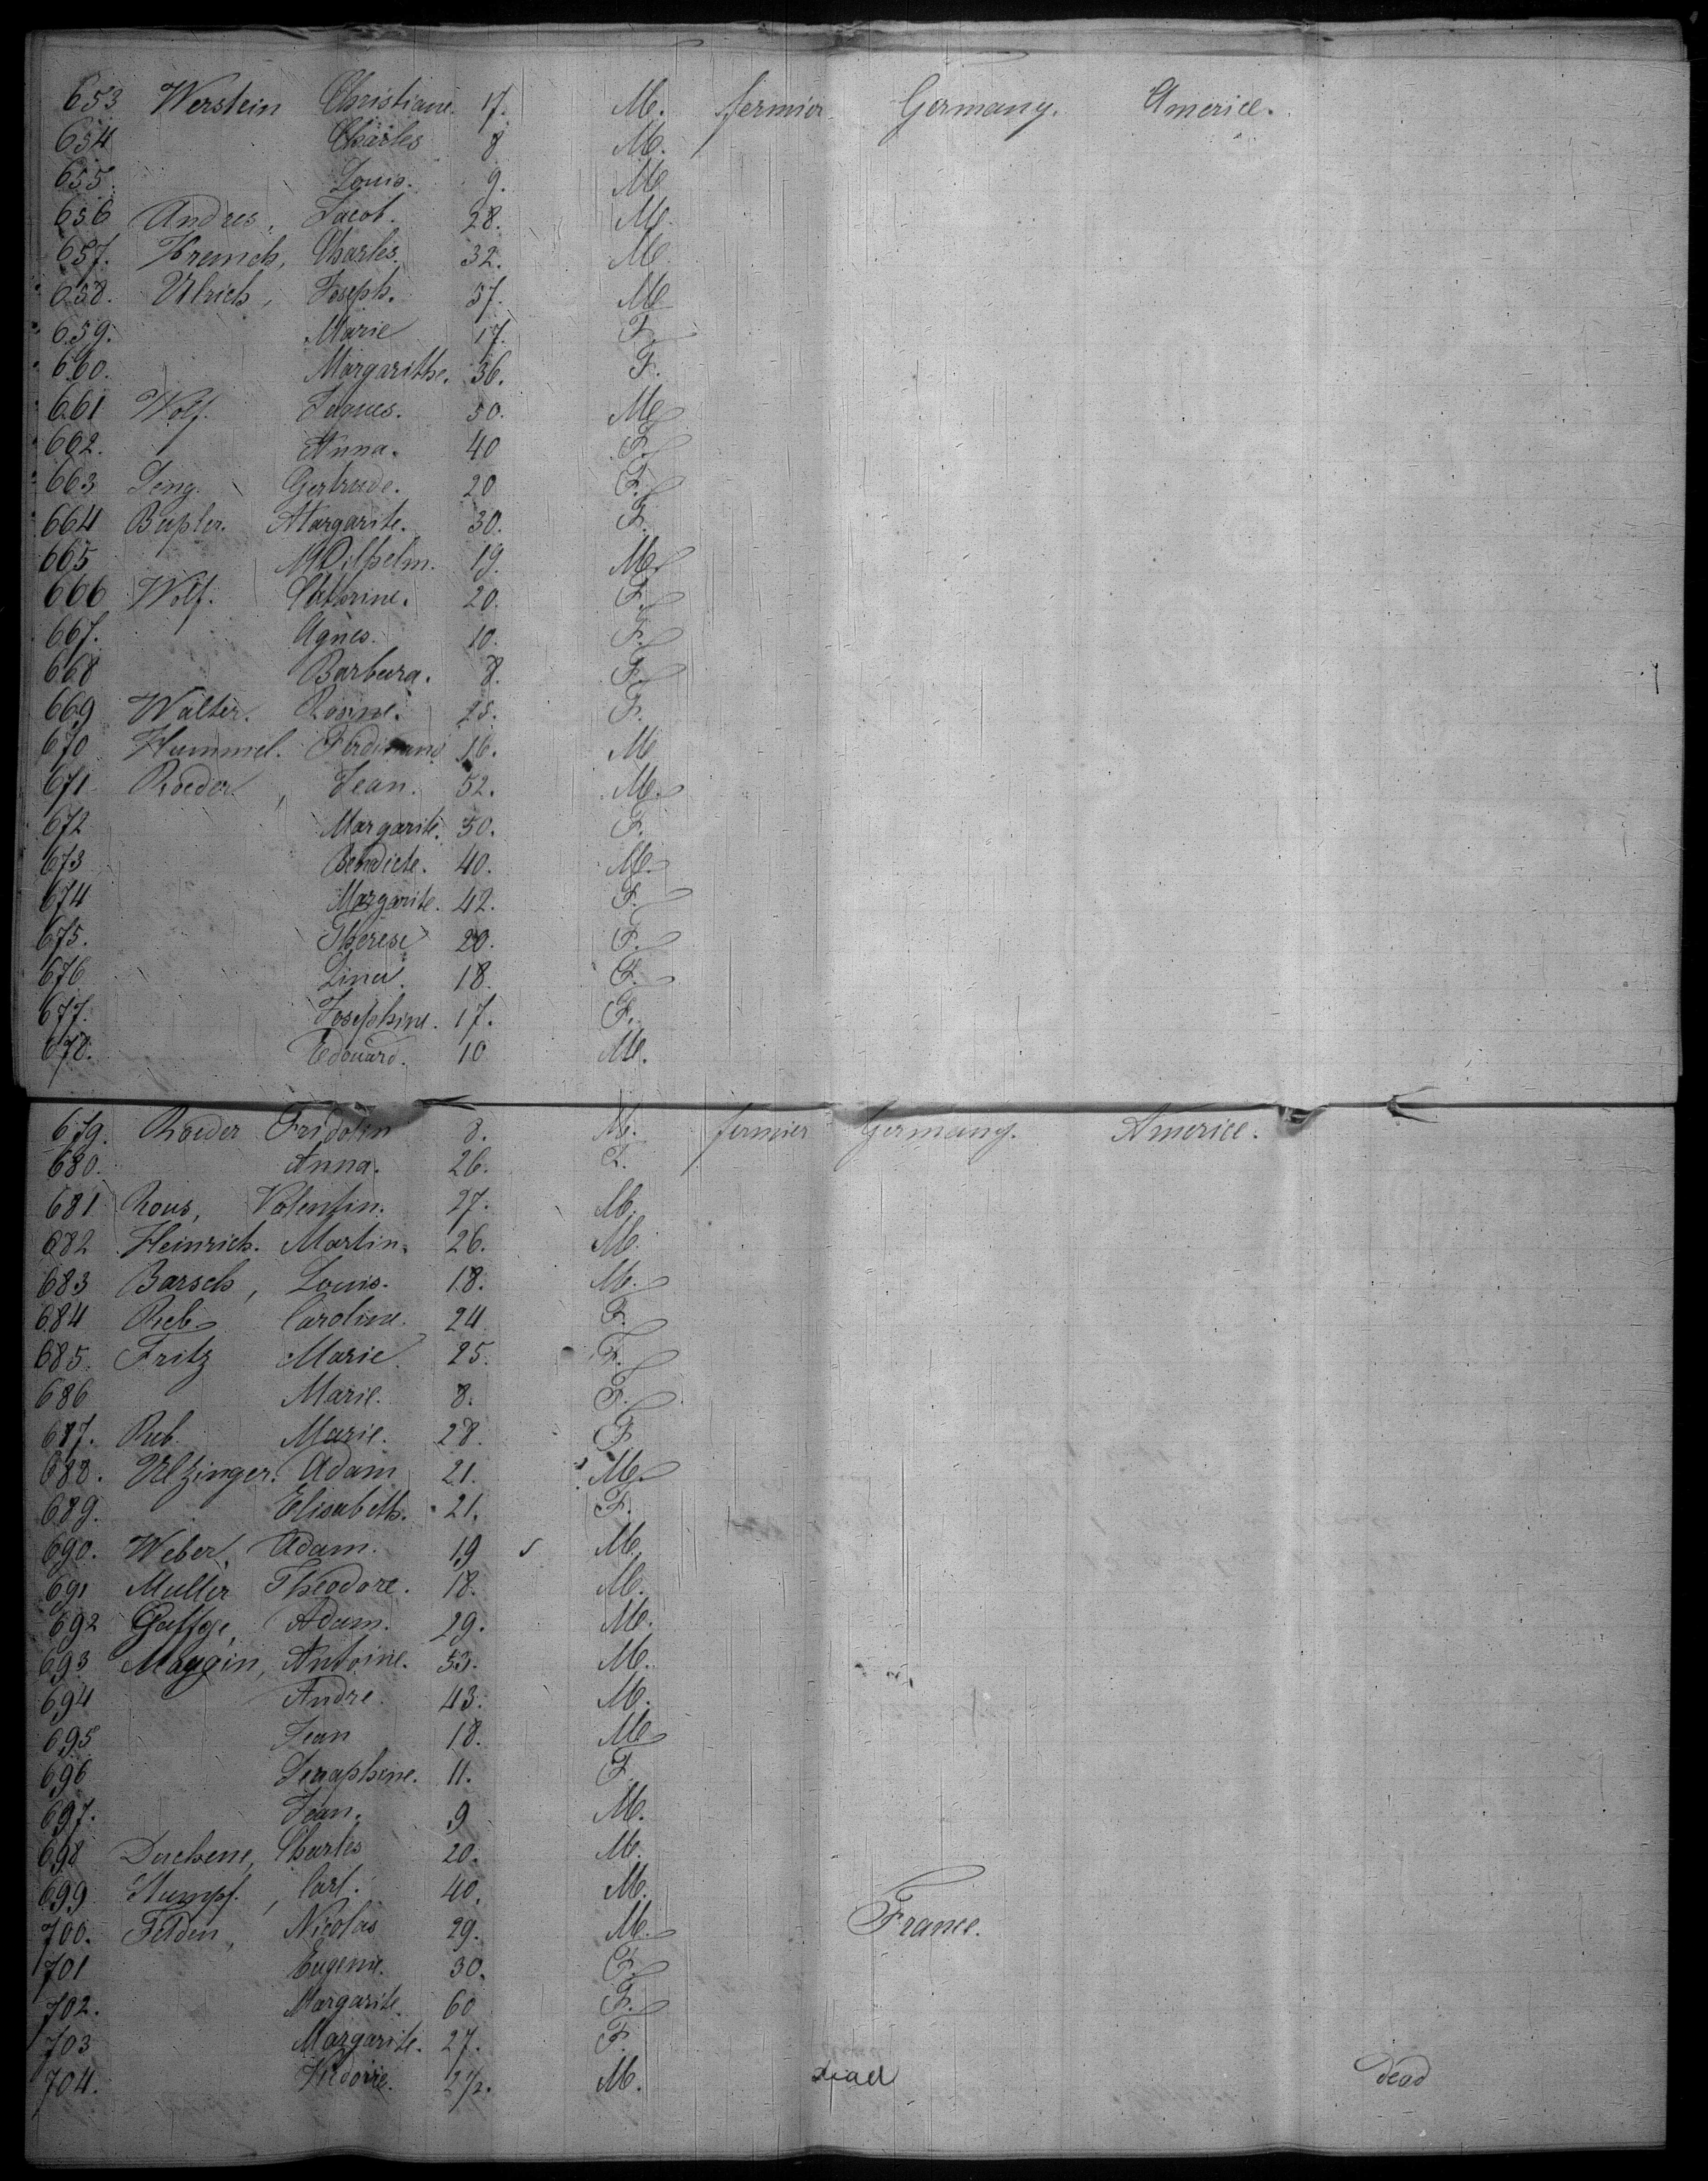 653 Werstein Christiane. 17. M. fermier Germany. Americe.
654 Charles 8 M.
655. Louis. 9. M
656 Andres, Jacob. 28. M.
657. Charles. 32. M.
658. Ulrich, Joseph. 57. M
659. Marie 17. F.
660. Margarithe. 36. F.
661 Wolf. Jaques. 50. M
662. Anna. 40 F.
663 Gertrude. 20 F.
664 Margarite. 30. F.
665 Wilhelm. 19. M.
666 Wolf. Cathrine. 20. F.
667. Agnes. 10. F.
668 Barbara. 8. F.
669 Walter. Rosine. F.
670 Hummel. Ferdinand 16. M
671 Roeder, Jean. 52. M.
672 Margarite. 50. F.
673 Bendicte. 40. M.
674 Margarite. 42. F.
675. Therese 20. F.
676 Lina. 18. F.
677. Josephine. 17. F.
678. Edouard. 10 M.
679. Roeder Fridolin 8. M. fermier Germany. Americe.
680. Anna. 26. F.
681 Rous, Valentin. 27. M.
682 Heinrich. Martin. 26. M.
683 Barsch, Louis. 18. M.
684 Rieb Caroline. 24 F.
685. Fritz Marie. 25. F.
686 Marie. 8. F.
687. Marie. 28. F
688. Ulzinger. Adam 21. M.
689. Elisabeth. 21. F.
690. Weber, Adam. 19 M.
691 Muller Theodore. 18. M.
692 Adam. 29. M.
693 Maugin, Antoine. 53. M.
694 Andre. 43. M.
695 Jean 18. M
696 Seraphine. 11. F.
697. Jean. 9 M.
698 Duchene, Charles 20. M.
699 Stumpf, Carl. 40. M.
700. Felden, Nicolas 29. M. France.
701 Eugenie. 30. F.
702. Margarite. 60 F.
703 Margarite. 27. F.
704. M. dead dead